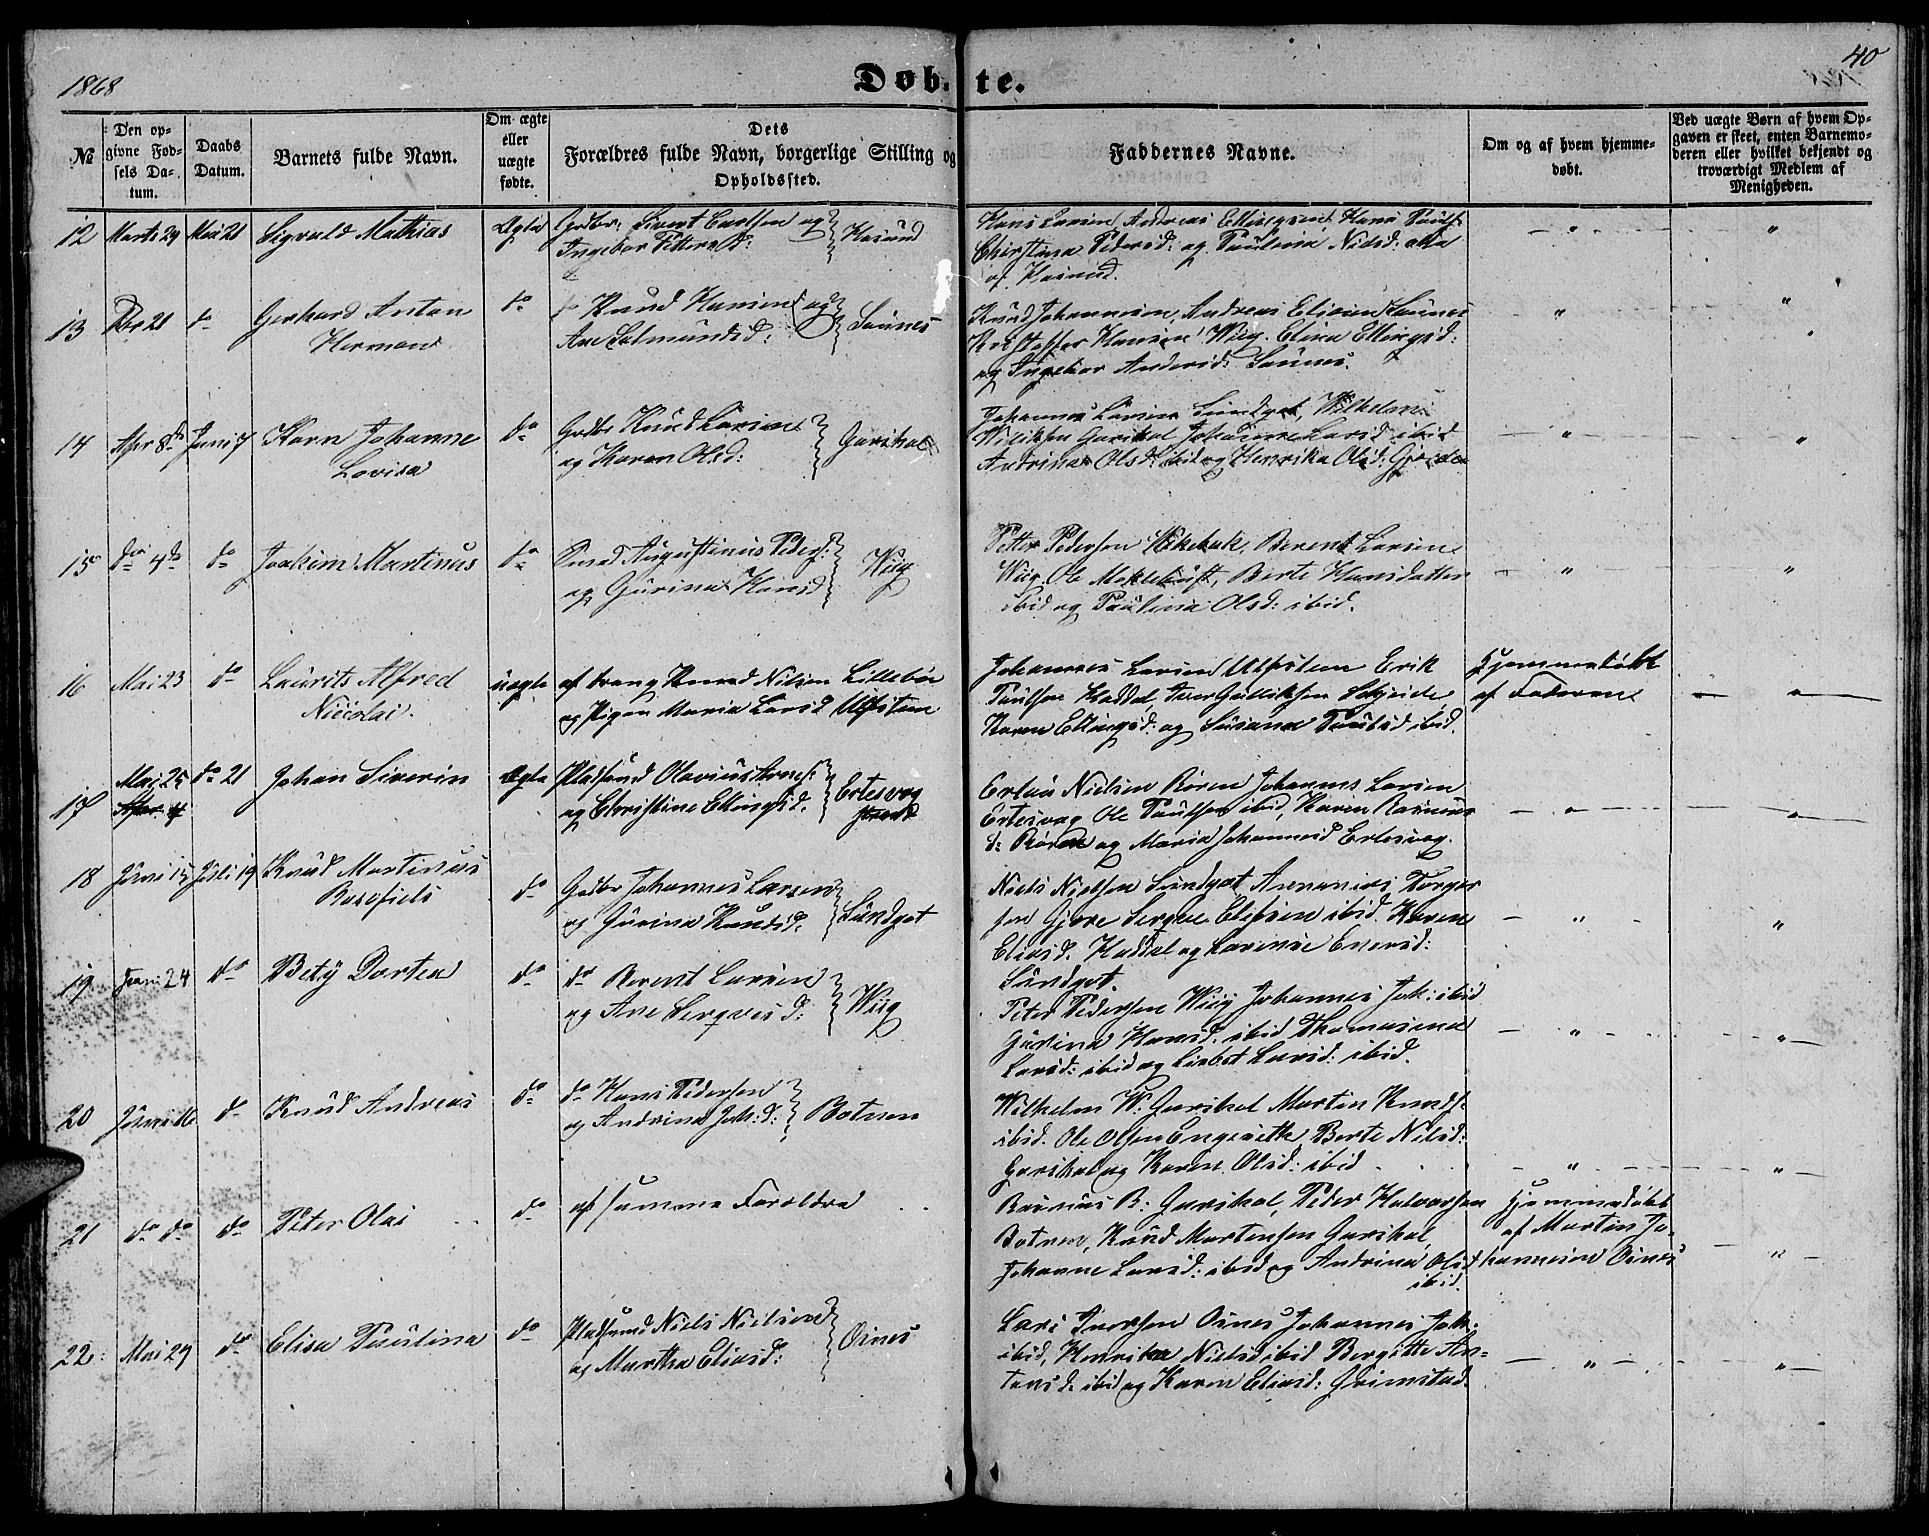 1868
Døbte.
40
№
Den opgivne Fødsels Datum.
Daabs Datum.
Barnets fulde Navn.
Om ægte eller uægte fødte.
Dets Forældres fulde Navn, borgerlige Stilling og Opholdssted.
Faddernes Navne.
Om og af hvem hjemmedøbt.
Ved uægte Børn af hvem Opgaven er skeet, enten Barnemoderen eller hvilket bekjendt og troværdigt Medlem af Menigheden.
12 Marts 29 Mai 21 Sigvald Mathias Ægte Gdbr: Sivert Carlsen og
Ingebor Pettersd: Hasund
Hans Larsen Andreas Ellingsen, Hans Pauls:
Christina Pedersd: og Paulina Nilsd: alle
af Hasund.
13 21 do Gerhard Anton
Herman
do Knud Hansen og
Ane Salmundsd: Saunes
Knud Johannesen, Andreas Eliesen Saunes
Kristoffer Hansen Wiig. Elina Ellingsd:
og Ingebor Andersd: Saunes.
14 Apr 8de Juni 7 Karn Johanne
Lovisa
do Gdbr Knud Larsen
og Karen Olsd: Gurskal
Johannes Larsen Sundgot, Wilhelm
Williksen Gurskal Johanne Larsd ibid
Andrina Olsd: ibid og Henrika Olsd: Gjerde
15 do 4de do Joakim Martinus do Smed Augustinus Peders:
og Gurina Hansd Wiig
Petter Pedersen Wikebak, Berent Larsen
Wiig. Ole Myklebust, Berte Hansdatter
ibid og Paulina Olsd: ibid.
16 Mai 23 do Laurits Alfred
Nicolai.
uægte af Ung Knud Nilsen Lillebø
og Pigen Maria Larsd Ulfsten
Johannes Larsen Ulfsten Erik
Paulsen Haddal, Iver Gulliksen Seljeide
Karen Ellingsd: og Susana Paulsd ibid.
Hjemmedøbt
af Faderen
17 Mai 25 do 21 Johan Siverin Ægte Pladsmd Olavius Arnes:
og Christine Ellingsd. Ertesvog
Erland Nielsen Røren Johannes Larsen
Ertesvag Ole Paulsen ibid, Karen Rasmus
d: Røren og Maria Johannesd Ertesvag.
18 Juni 15 Juli 19 Knud Martinus
Basefiels
do Gdbr Johannes Larsen
og Gurina Knudsd. Sundgot
Niels Nielsen Sundgot Ananias Torger
sen Gjere Serine Eliesen ibid. Karen
Eliasd. Haddal og Larense Eversd:
Sundgot.
19 Juni 24 do Bety Dortea do do Berent Larsen
og Ane Serqvesd: Wiig
Peter Pedersen Wiig Johannes Joh: ibid
Gurina Hansd. ibid Thomasina
Larsd: ibid og Lisbet Larsd: ibid.
20 Juni 16 do Knud Andreas do do Hans Pedersen
og Andrina Joh:d: Botnen
Wilhelm W: Gurskal Martin Knuds:
ibid. Ole Olsen Engeseth Berte Nilsd:
Gurskal og Karen Olsd: ibid
21 do do do Peter Olai do af samme Forældre
Rasmus B: Gurskal, Peder Halvorsen
Botnen, Knud Mortensen Gurskal,
Johanne Larsd: ibid og Andrina Olsd
ibid.
Hjemmedøbt
af Martin Jo-
hannesen Osnes
22: Mai 29 do Elisa Paulina do Pladsmd Niels Nielsen
og Martha Eliasd: Osnes
Lars Iversen Osnes Johannes Joh:
ibid, Henrika Nielsd ibid Bergitte An-
tonsd. ibid og Karen Eliasd: Grimstad.